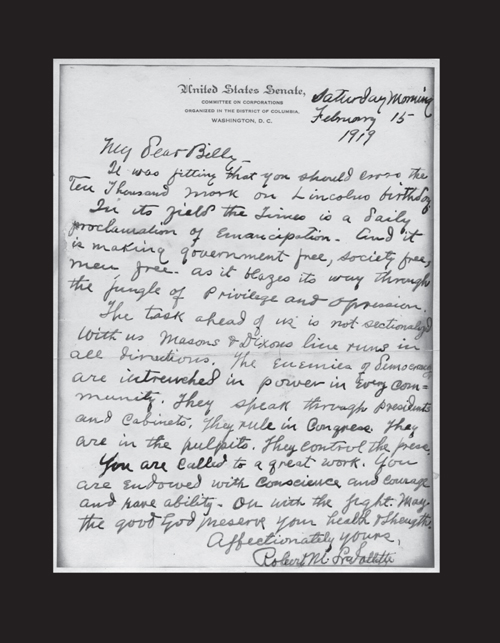 United States Senate,
COMMITTEE ON CORPORATIONS
ORGANIZED IN THE DISTRICT OF COLUMBIA.
WASHINGTON, D. C.
Saturday Morning
February 15
1919
My Dear Billy
It was fitting that you should cross the
Ten Thousand mark on Lincolns birthday
In its field the Times is a daily
proclamation of Emancipation. And it
is making government free, society free,
men free. as it blazes its way through
the jungle of Privilege and Opression.
The task ahead of us is not sectionalized
With us Masons & Dixons line runs in
all directions. The Enemies of democracy
are intrenched in power in Every com=
munity. They speak through Presidents
and Cabinets. They rule in Congress. They
are in the pulpits. They control the press.
You are called to a great work. You
are endowed with Conscience and courage
and rare ability. On with the fight. May
the good God preserve your health & strength.
Affectionately yours,
Robert M. La Follette